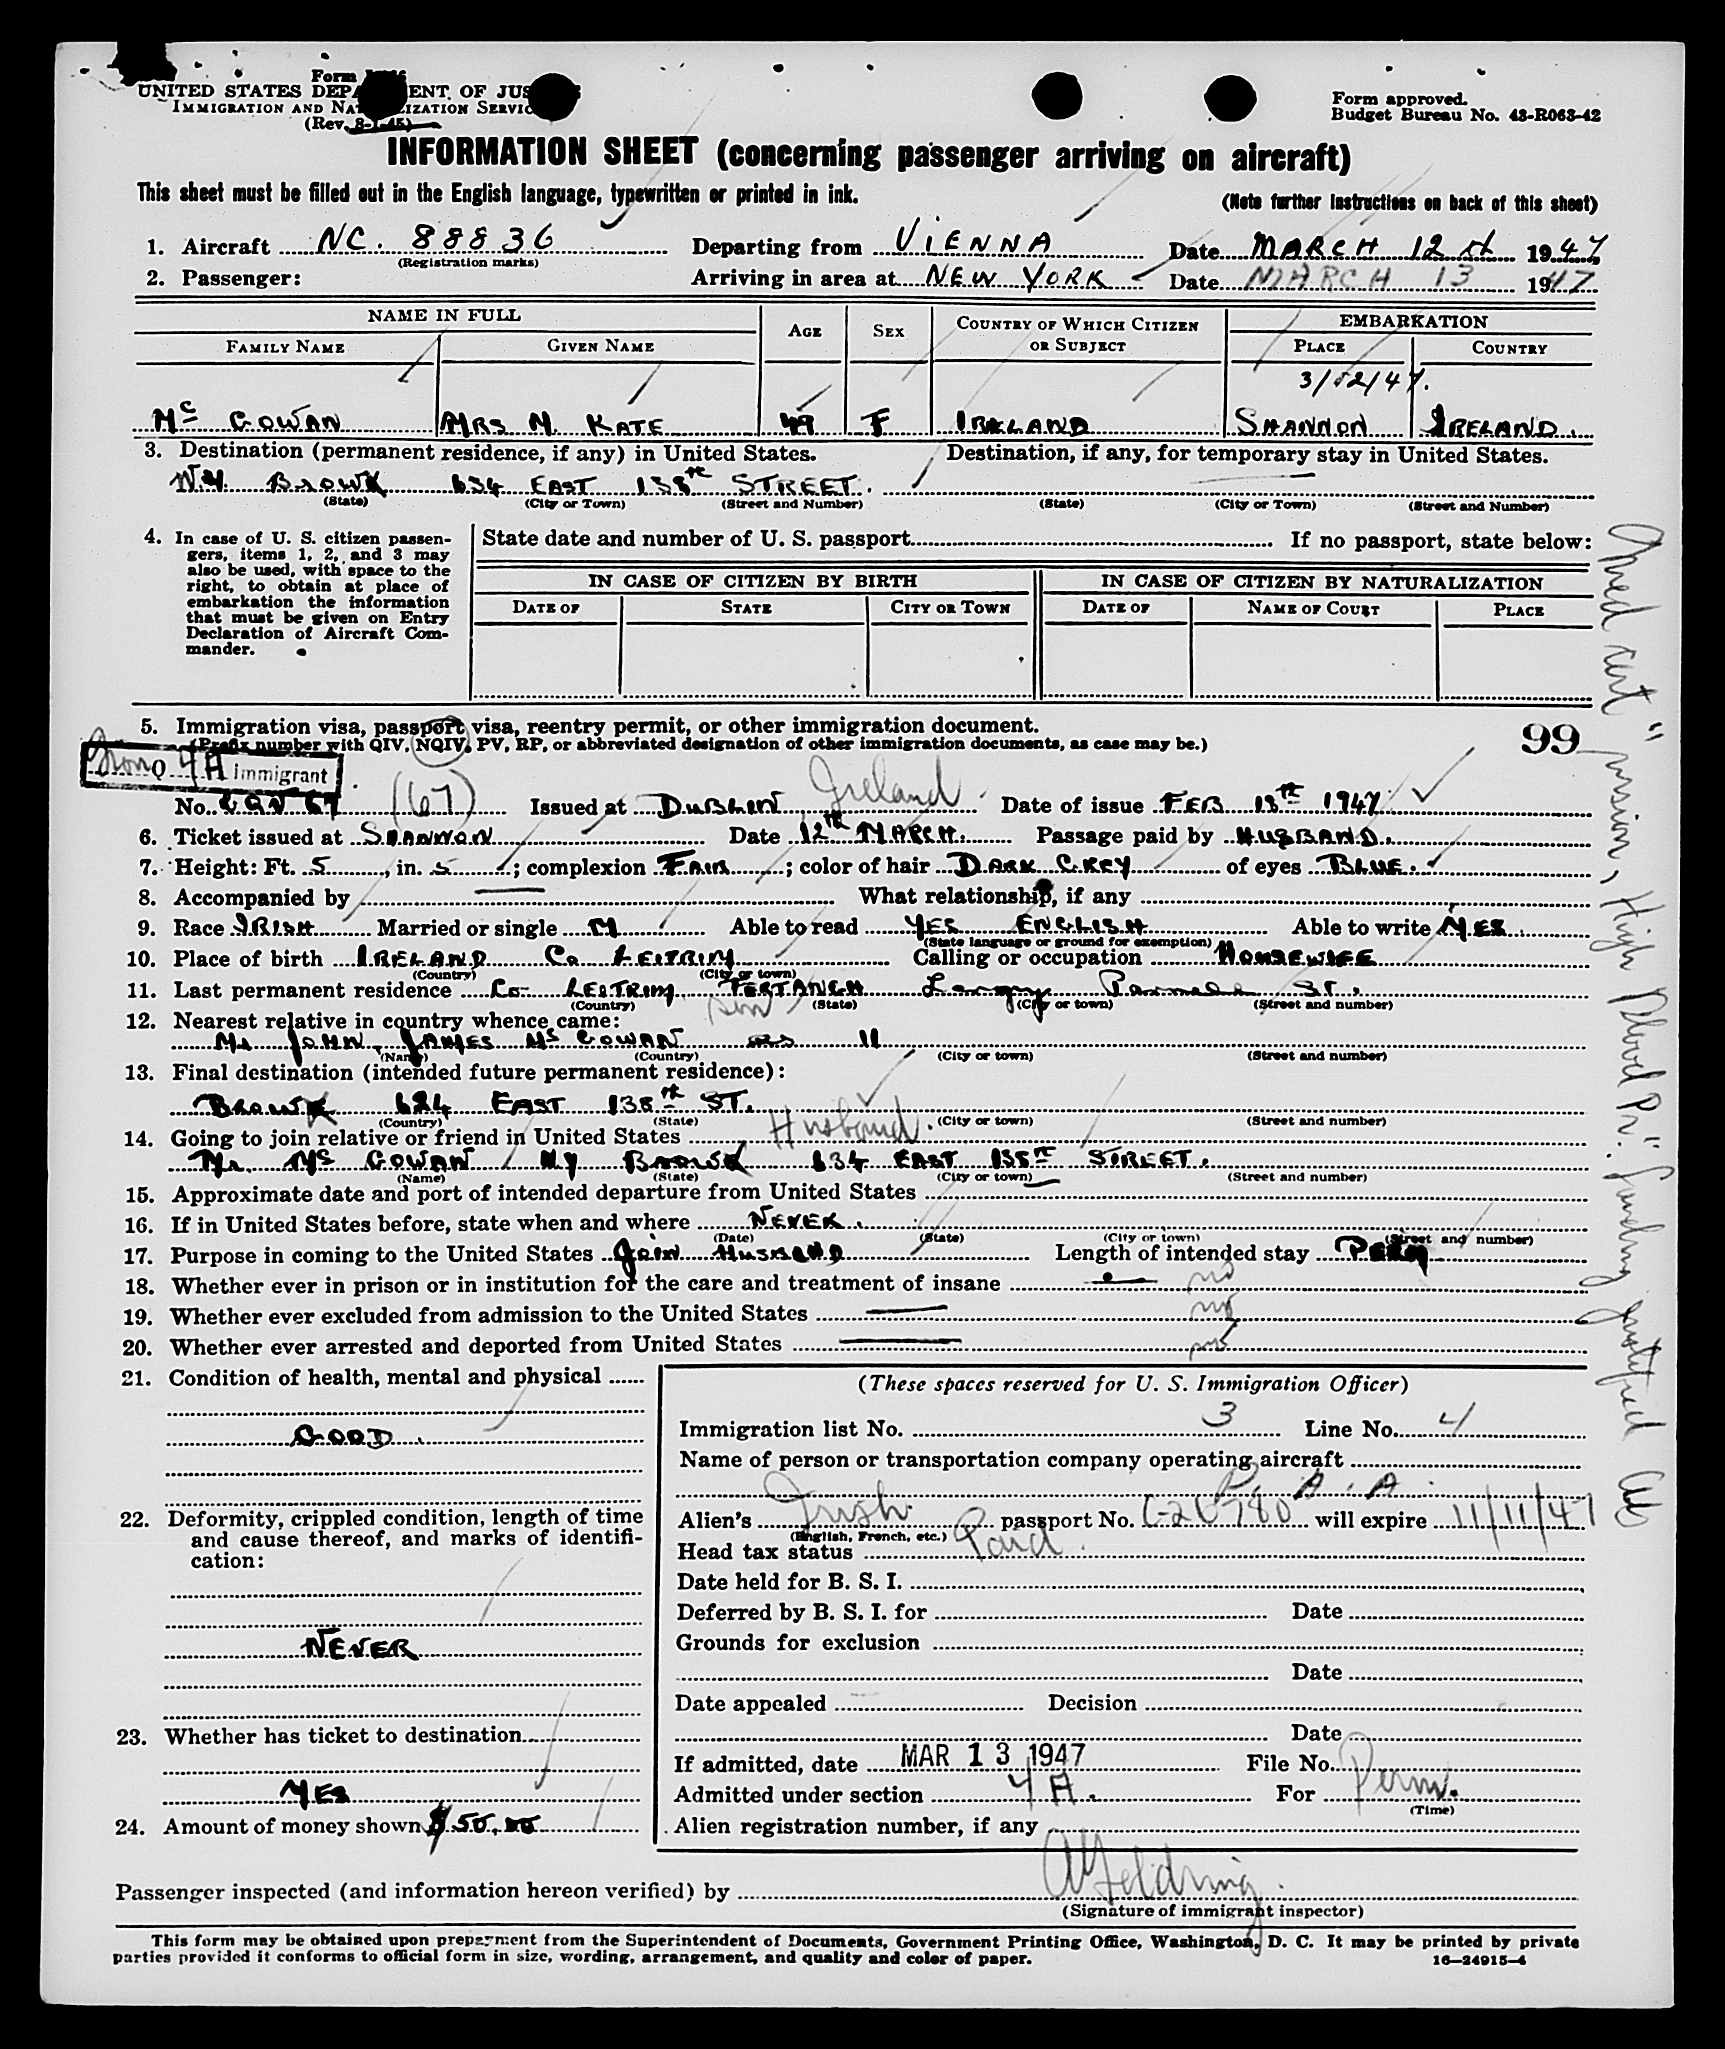 Form
UNITED STATES DEPARTMENT OF JUSTICE
IMMIGRATION AND NATURALIZATION SERVICE
(Rev. 8-1-45)
Form approved.
Budget Bureau No. 43-R063-42
INFORMATION SHEET (concerning passenger arriving on aircraft)
This sheet must be filled out in the English language, typewritten or printed in ink.
(Note further instructions on back of this sheet)
1. Aircraft NC. 88836 Departing from VIENNA Date MARCH 12th 1947
(Registration marks)
2. Passenger: Arriving in area at NEW YORK Date MARCH 13 1947
NAME IN FULL AGE SEX COUNTRY OF WHICH CITIZEN OR SUBJECT EMBARKATION
FAMILY NAME GIVEN NAME PLACE COUNTRY
3/12/47.
Mc GOWAN MRS M. KATE 49 F IRELAND SHANNON IRELAND.
3. Destination (permanent residence, if any) in United States. Destination, if any, for temporary stay in United States.
N.Y. BRONX 634 EAST 138th STREET.
(State) (City or Town) (Street and Number) (State) (City or Town) (Street and Number)
4. In case of U. S. citizen passen-
gers, items 1, 2, and 3 may
also be used, with space to the
right, to obtain at place of
embarkation the information
that must be given on Entry
Declaration of Aircraft Com-
mander.
State date and number of U. S. passport If no passport, state below:
IN CASE OF CITIZEN BY BIRTH IN CASE OF CITIZEN BY NATURALIZATION
DATE OF STATE CITY OR TOWN DATE OF NAME OF COURT PLACE
5. Immigration visa, passport visa, reentry permit, or other immigration document.
(Prefix number with QIV, NQIV, PV, RP, or abbreviated designation of other immigration documents, as case may be.)
99
Non Q 4A Immigrant
No. 67 (67) Issued at DUBLIN Ireland Date of issue FEB 18th 1947
6. Ticket issued at SHANNON Date 12th MARCH. Passage paid by HUSBAND.
7. Height: Ft. 5, in. 5; complexion FAIR; color of hair DARK GREY of eyes BLUE.
8. Accompanied by What relationship, if any
9. Race IRISH Married or single M Able to read YES ENGLISH Able to write YES
(State language or ground for exemption)
10. Place of birth IRELAND Co LEITRIM Calling or occupation HOUSEWIFE
(Country) (City or town)
11. Last permanent residence Co LEITRIM St.
(Country) (State) (City or town) (Street and number)
12. Nearest relative in country whence came: son
Mr JOHN JAMES Mc GOWAN as 11
(Name) (Country) (City or town) (Street and number)
13. Final destination (intended future permanent residence):
BRONX 634 EAST 138th ST.
(Country) (State) (City or town) (Street and number)
14. Going to join relative or friend in United States Husband.
Mr. Mc GOWAN NY BRONX 634 EAST 138th STREET.
(Name) (State) (City or town) (Street and number)
15. Approximate date and port of intended departure from United States
16. If in United States before, state when and where NEVER.
(Date) (State) (City or town) (Street and number)
17. Purpose in coming to the United States JOIN HUSBAND Length of intended stay PERM
18. Whether ever in prison or in institution for the care and treatment of insane no
19. Whether ever excluded from admission to the United States no
20. Whether ever arrested and deported from United States no
21. Condition of health, mental and physical
GOOD.
22. Deformity, crippled condition, length of time
and cause thereof, and marks of identifi-
cation:
NEVER
23. Whether has ticket to destination
YES
24. Amount of money shown $50.00
(These spaces reserved for U. S. Immigration Officer)
Immigration list No. 3 Line No. 4
Name of person or transportation company operating aircraft
P. A. A.
Alien's Irish passport No. C-26780 will expire 11/11/47
(English, French, etc.)
Head tax status Paid.
Date held for B. S. I.
Deferred by B. S. I. for Date
Grounds for exclusion
Date
Date appealed Decision
Date
If admitted, date MAR 13 1947 File No.
Admitted under section 4A. For Perm.
(Time)
Alien registration number, if any
Passenger inspected (and information hereon verified) by
(Signature of immigrant inspector)
This form may be obtained upon prepayment from the Superintendent of Documents, Government Printing Office, Washington, D. C. It may be printed by private
parties provided it conforms to official form in size, wording, arrangement, and quality and color of paper.
16—24915-4
Med cert " vision, High Blood Pr". Landing justified